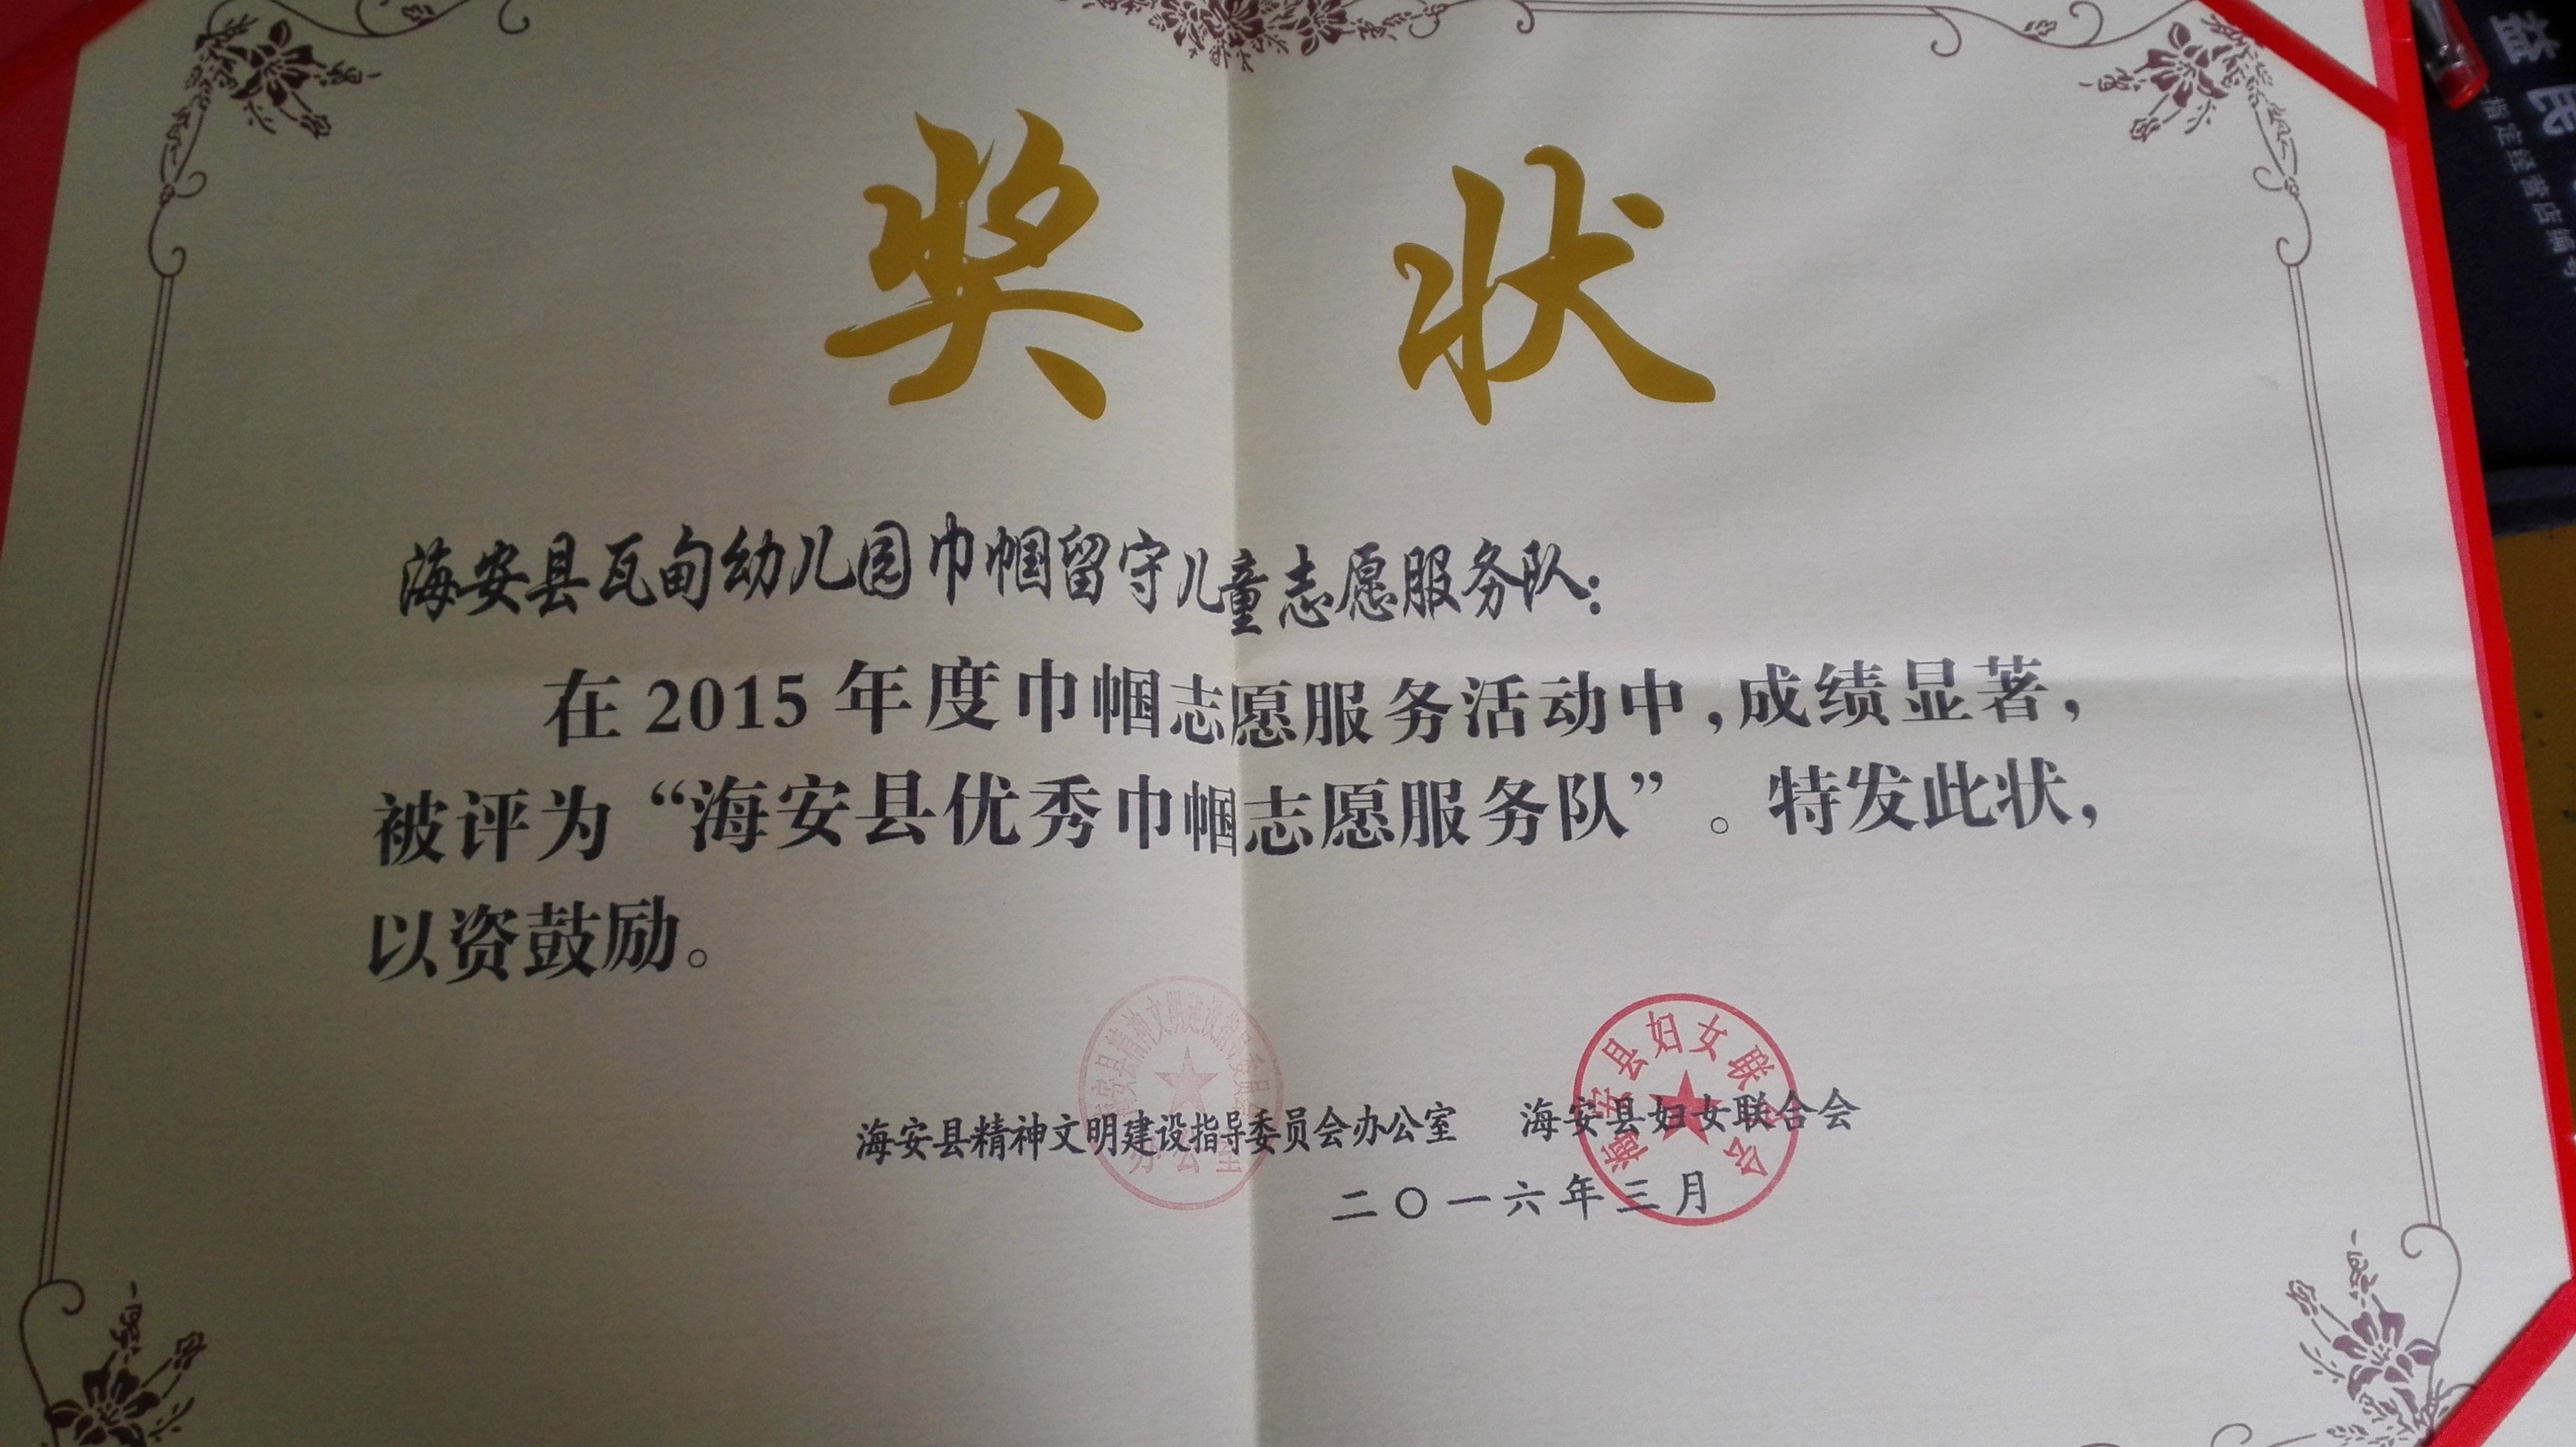 奖状
海安县瓦甸幼儿园巾帼留守儿童志愿服务队：
在2015年度巾帼志愿服务活动中，成绩显著，
被评为“海安县优秀巾帼志愿服务队”。特发此状，
以资鼓励。
海安县精神文明建设指导委员会办公室 海安县妇女联合会
二〇一六年三月
海安县精神文明建设指导委员会
办公室
海安县妇女联合会
益民
指定经营店编号